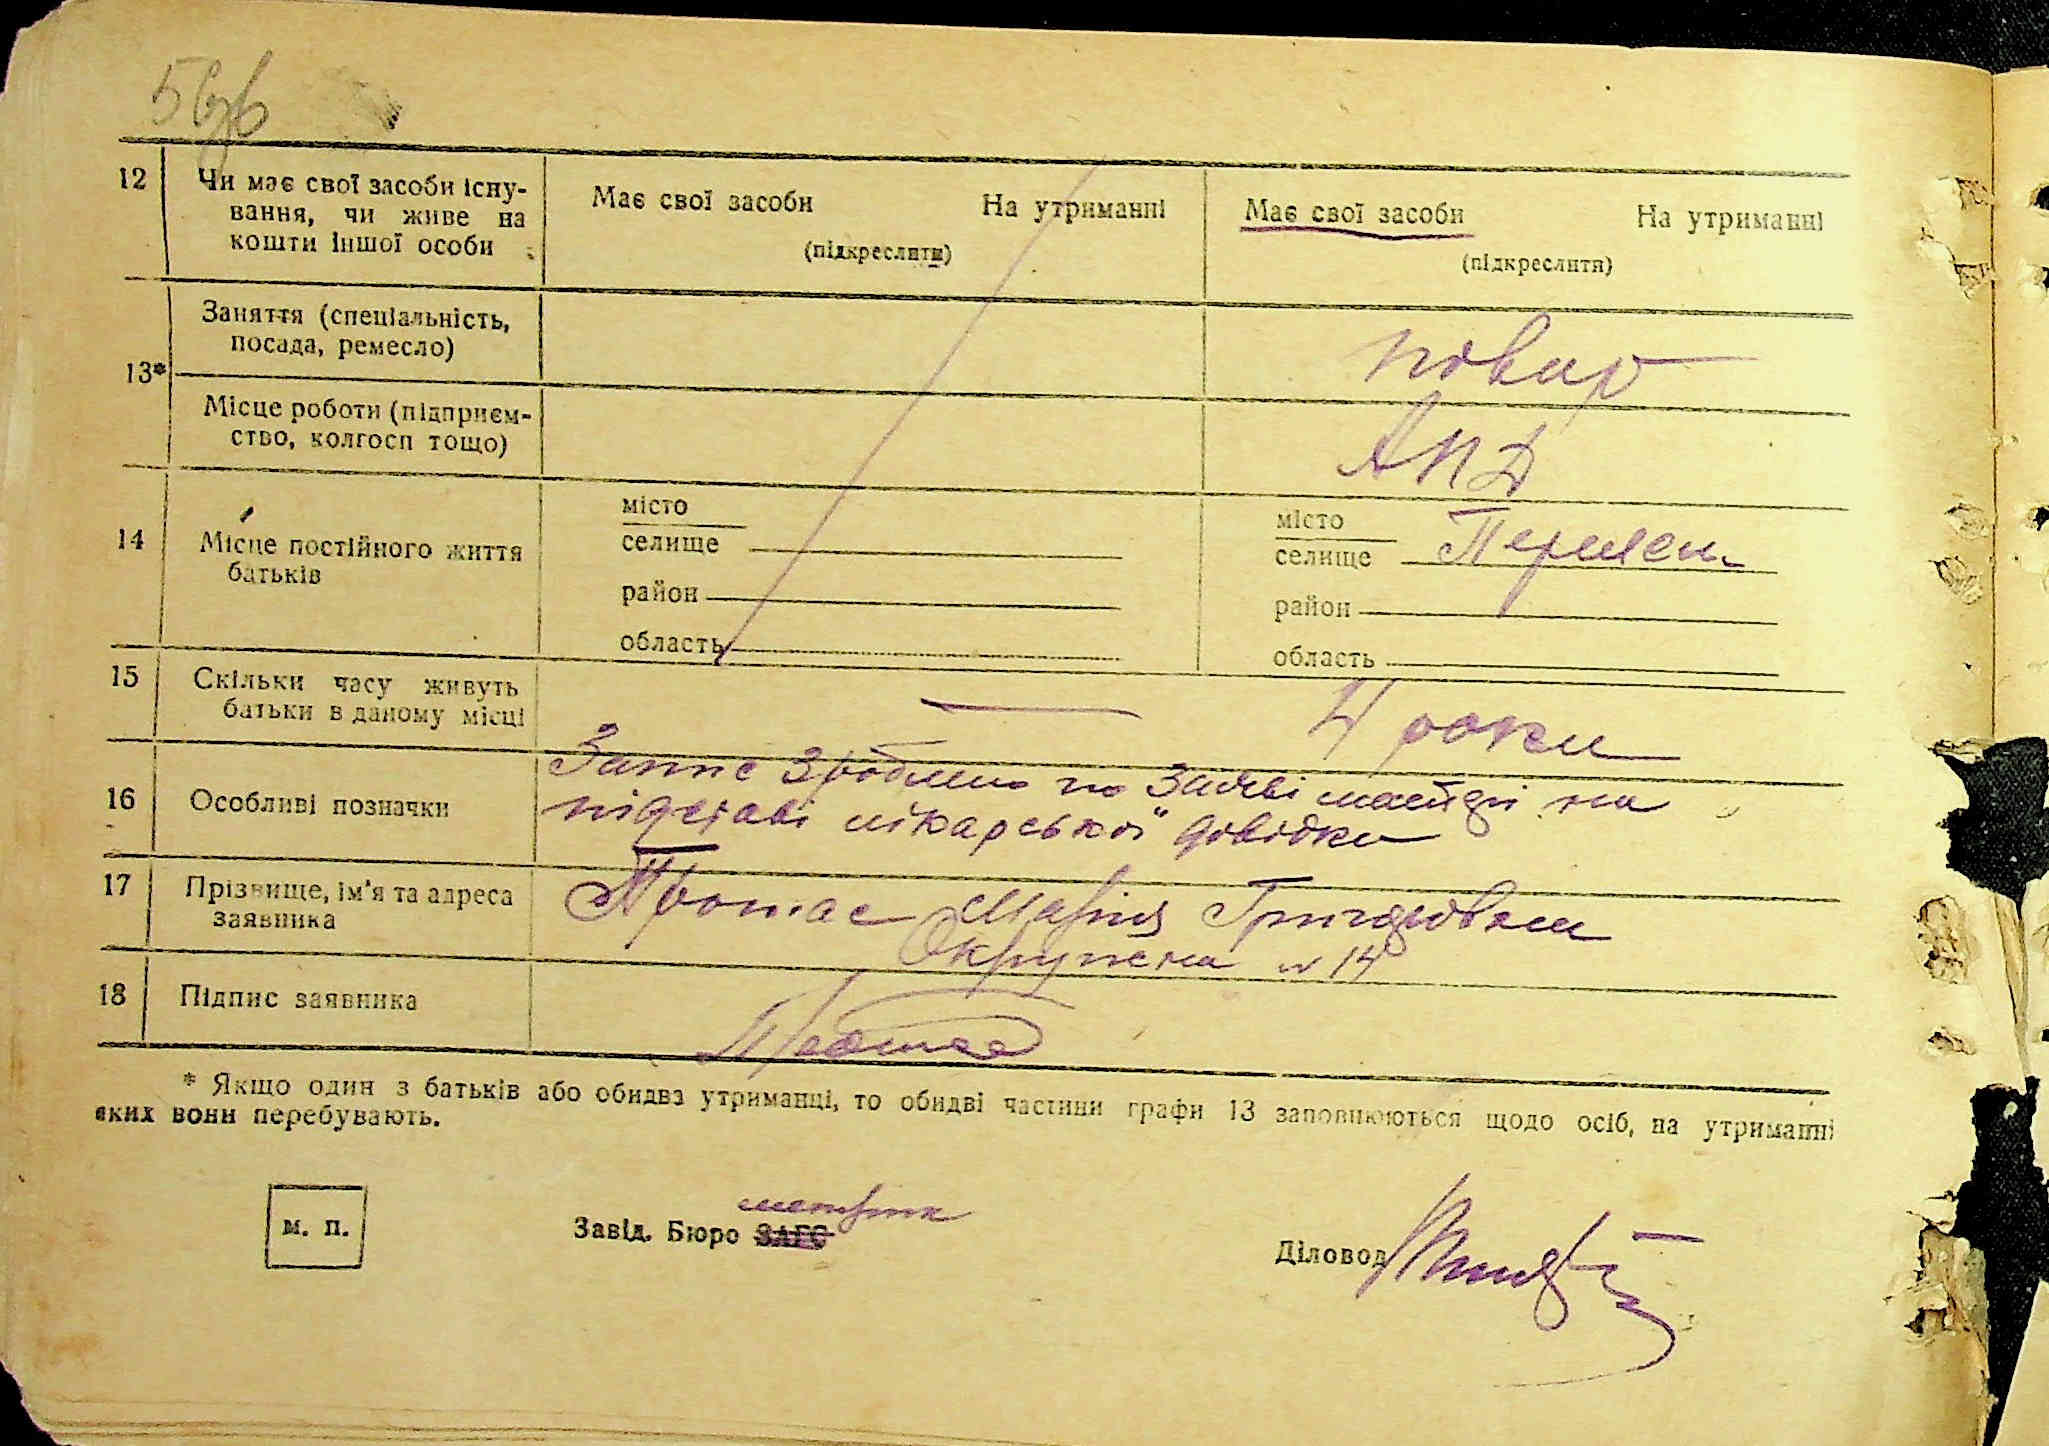 56зв
12 Чи має свої засоби існу- Має свої засоби На утриманні Має свої засоби На утриманні
вання, чи живе на (підкреслити) (підкреслити)
кошти іншої особи
13* Заняття (спеціальність, повар
посада, ремесло)
Місце роботи (підприєм- АПД
ство, колгосп тощо)
14 Місце постійного життя місто місто
батьків селище селище
район район
область область
15 Скільки часу живуть — 4 роки
батьки в даному місці
16 Особливі позначки Запис зроблено по заяві матері на
підставі лікарської довідки
17 Прізвище, ім'я та адреса Протас Марія Григоровна
заявника Окружна № 14
18 Підпис заявника Протас
* Якщо один з батьків або обидва утриманці, то обидві частини графи 13 заповнюються щодо осіб, на утриманні
яких вони перебувають.
м. п.
метрик
Завід. Бюро ЗАГС
Діловод